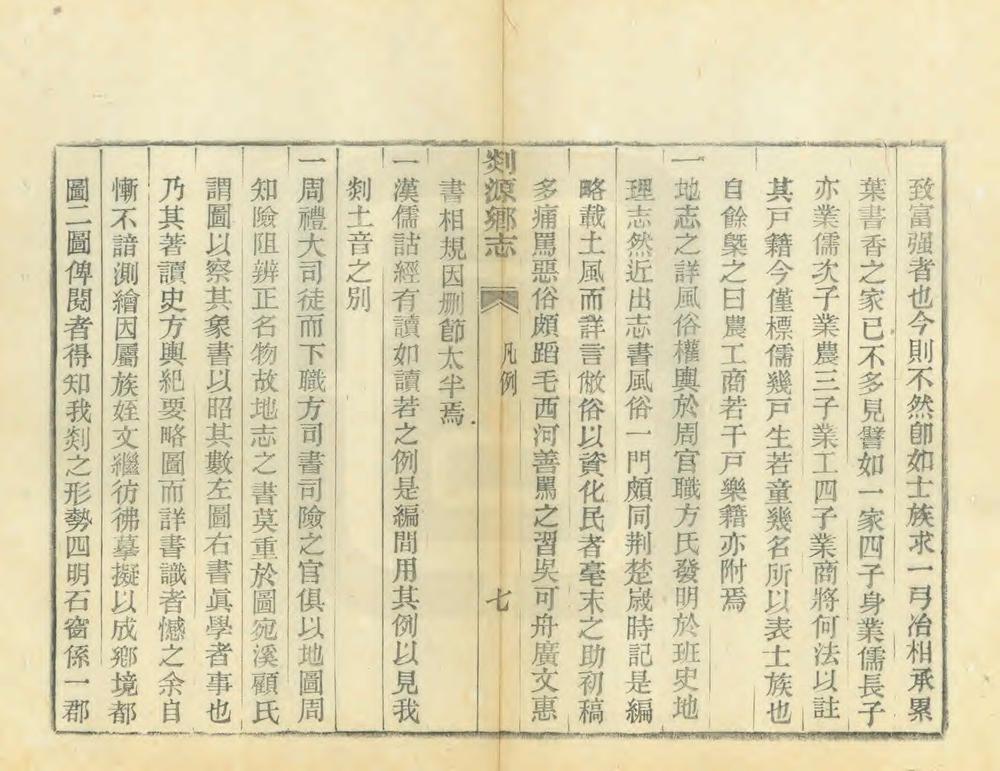 致富强者也今則不然卽如士族求一弓冶相承累
葉書香之家已不多見譬如一家四子身業儒長子
亦業儒次子業農三子業工四子業商將何法以註
其戸籍今僅標儒幾戸生若童幾名所以表士族也
自餘槩之曰農工商若干戸樂籍亦附焉
一地志之詳風俗權輿於周官職方氏發明於班史地
理志然近出志書風俗一門頗同荆楚歲時記是編
略載土風而詳言敝俗以資化民者毫末之助初稿
多痛罵惡俗頗蹈毛西河善罵之習吳可舟廣文惠
剡源鄉志 凡例 七
書相規因刪節太半焉
一漢儒詁經有讀如讀若之例是編間用其例以見我
剡土音之别
一周禮大司徒而下職方司書司險之官俱以地圖周
知險阻辨正名物故地志之書莫重於圖宛溪顧氏
謂圖以察其象書以昭其數左圖右書眞學者事也
乃其著讀史方輿紀要略圖而詳書識者憾之余自
慚不諳測繪因屬族姪文繼彷彿摹擬以成鄉境都
圖二圖俾閱者得知我剡之形勢四明石窗係一郡